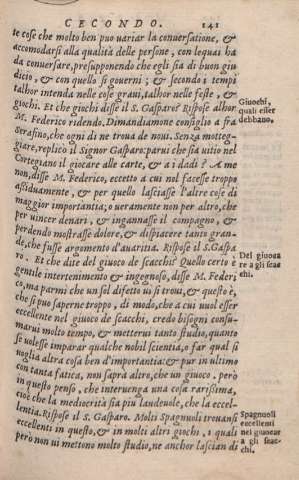 CECONDO. 141
te cose che molto ben puo uariar la conuersatione, &
accomodarsi alla qualità delle persone, con lequai ha
da conuersare, presupponendo che egli sia di buon giu
dicio, & con quello si gouerni; & secondo i tempi
talhor intenda nelle cose graui, talhor nelle feste, &
giochi. Et che giochi disse il S. Gasparo? Rispose alhor
M. Federico ridendo. Dimandiamone consiglio a fra
Serafino, che ogni dì ne troua de noui. Senza motteg-
giare, replicò il Signor Gasparo: parui che sia uitio nel
Cortegiano il giocare alle carte, & a i dadi? A me
non, disse M. Federico, eccetto a cui nol facesse troppo
assiduamente, & per quello lasciasse l'altre cose di
maggior importantia; o ueramente non per altro, che
per uincer denari, & ingannasse il compagno, &
perdendo mostrasse dolore, & dispiacere tanto gran-
de, che fusse argomento d'auaritia. Rispose il S. Gaspa
ro. Et che dite del giuoco de scacchi? Quello certo è
gentile intertenimento & ingegnoso, disse M. Federi
co, ma parmi che un sol difetto ui si troui, & questo è,
che si puo saperne troppo, di modo, che a cui uuol esser
eccellente nel giuoco de scacchi, credo bisogni consu-
marui molto tempo, & metterui tanto studio, quanto
se uolesse imparar qualche nobil scientia, o far qual si
uoglia altra cosa ben d'importantia: & pur in ultimo
con tanta fatica, non saprà altro, che un giuoco. però
in questo penso, che interuenga una cosa rarissima,
cioè che la mediocrità sia piu laudeuole, che la eccel-
lentia. Rispose il S. Gasparo. Molti Spagnuoli trouansi
eccellenti in questo, & in molti altri giochi, i quali
però non ui mettono molto studio, ne anchor lascian di
Giuochi,
quali esser
debbano.
Del giuoca
re a gli scac
chi.
Spagnuoli
eccellenti
nel giuocar
a gli scac-
chi.